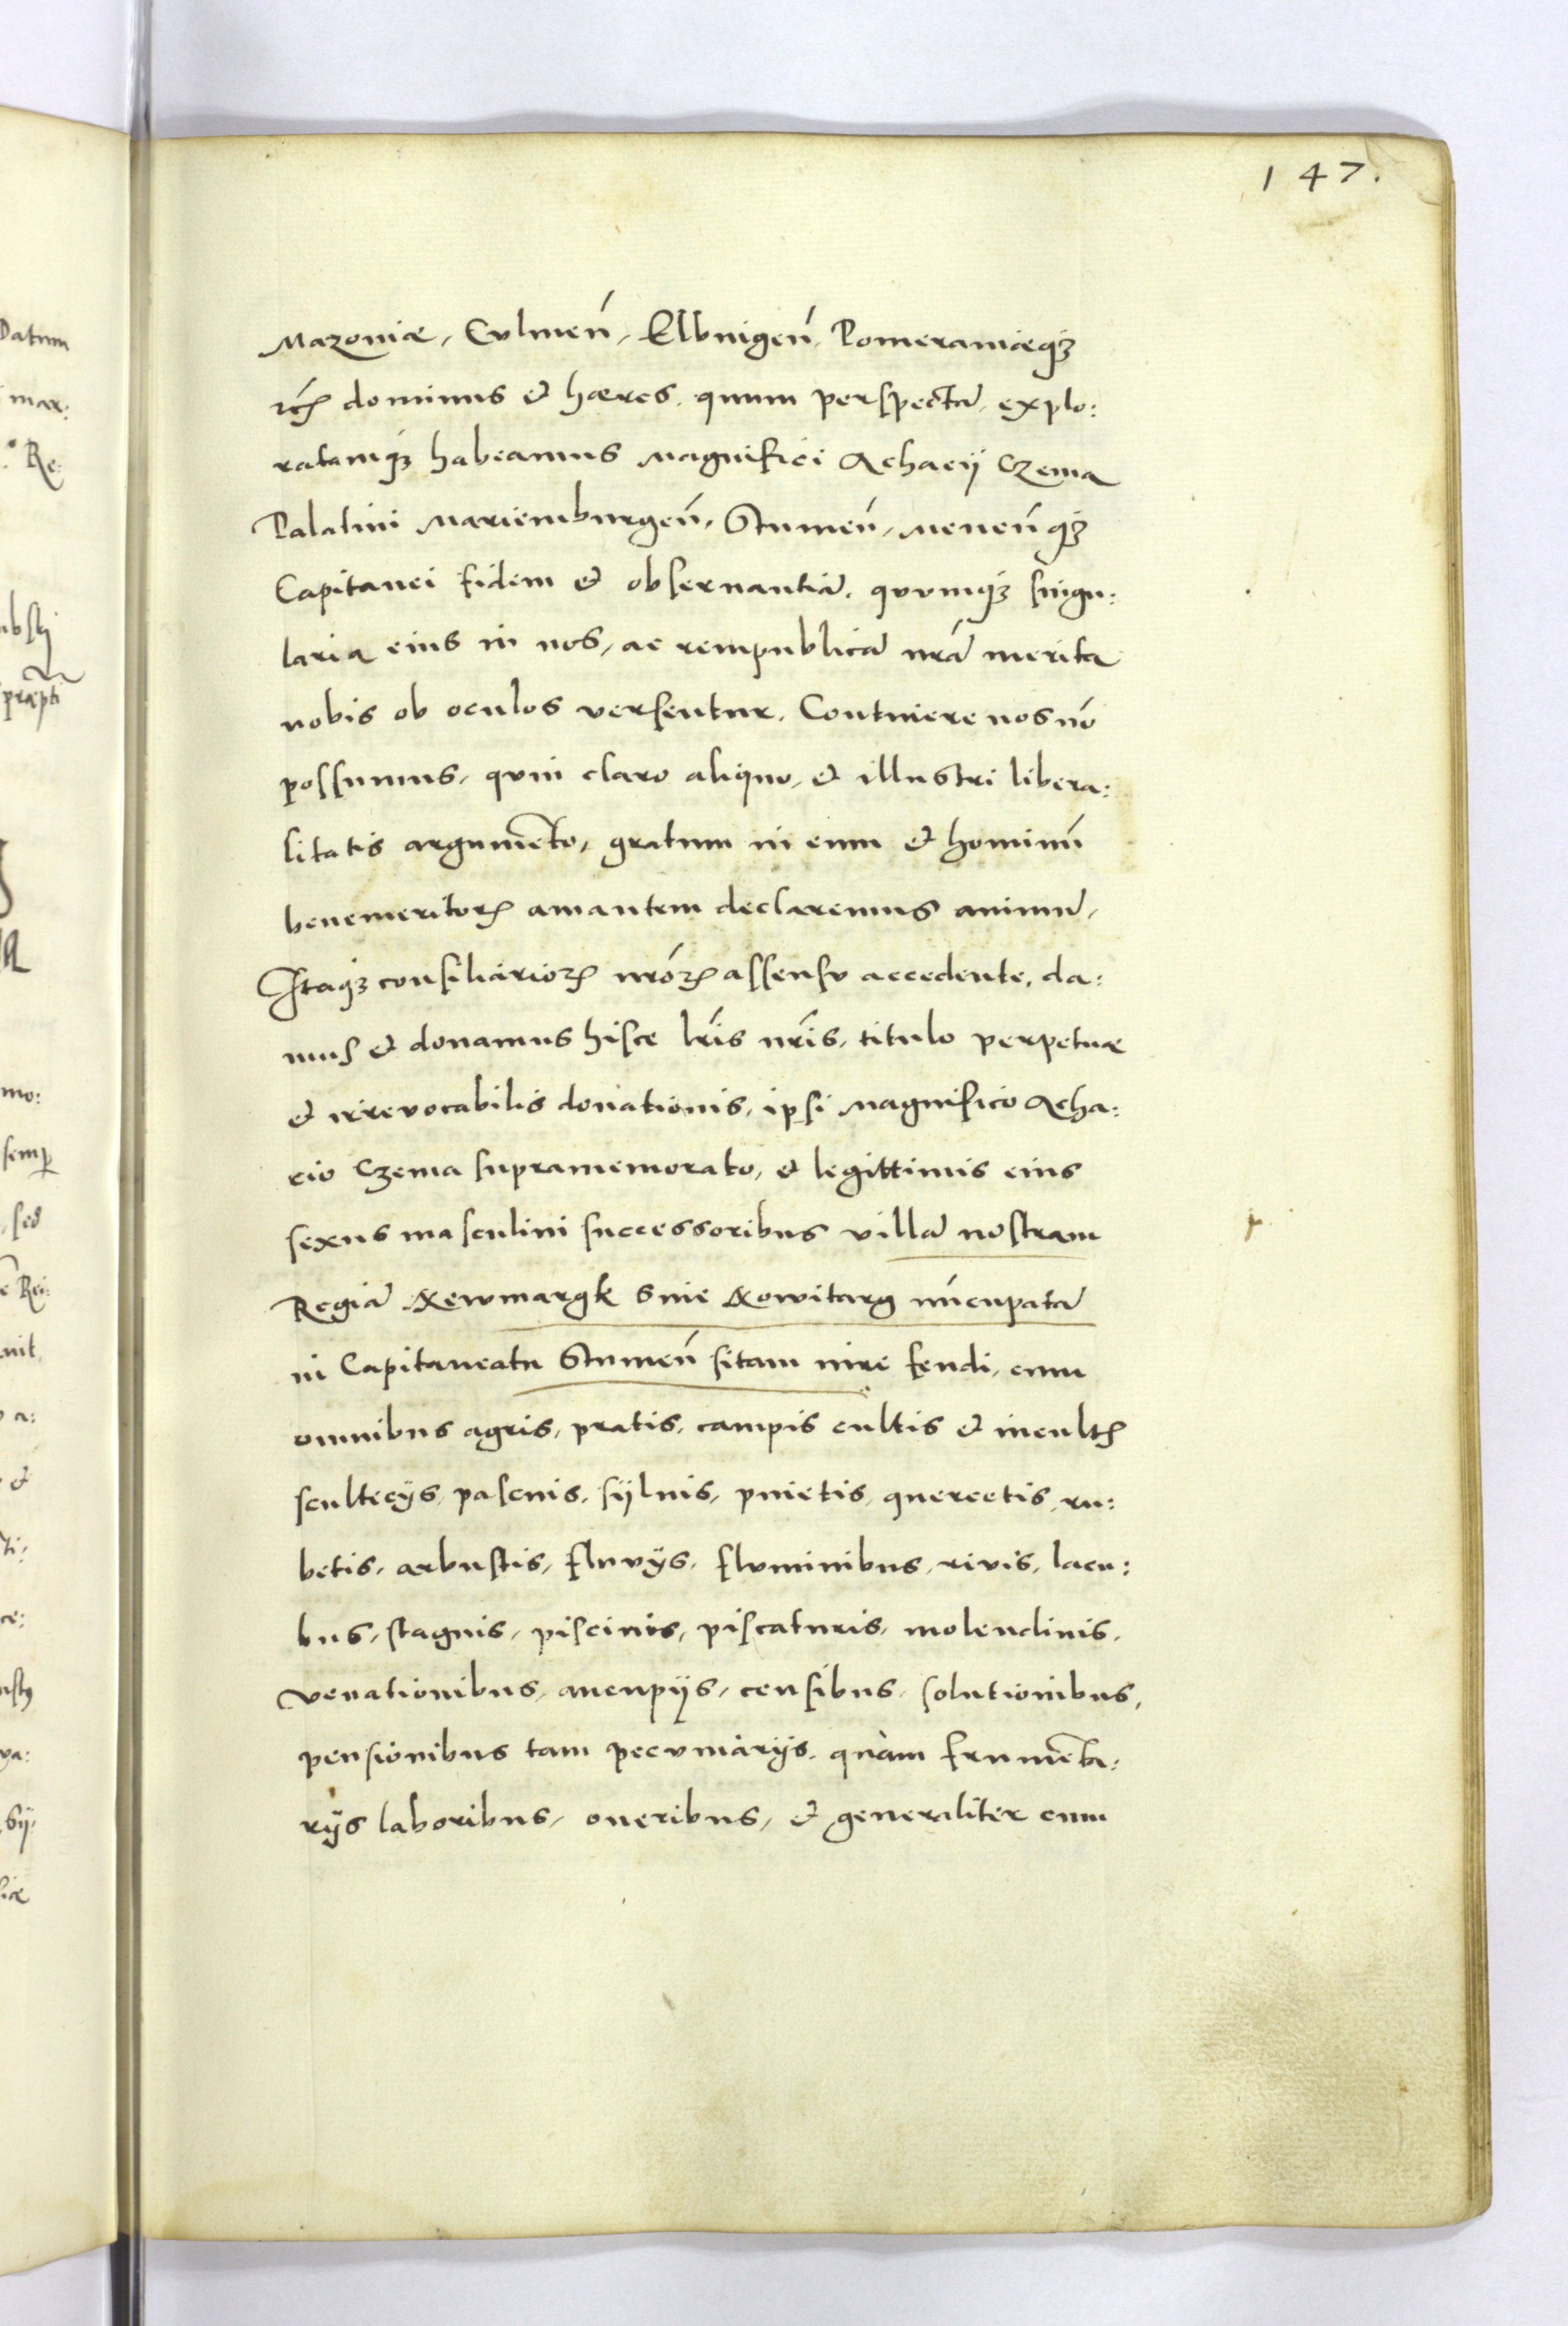 147.
Mazoniæ, Culmeñ, Elbingeñ, Pomeraniæqꝫ
ꝛcꝭ dominus et hæres, quum perspectā, explo:
ratamqꝫ habeamus Magnifici Achacij Czema
Palatini Mariemburgeñ, Stumeñ, Meueñqꝫ
Capitanei fidem et obseruantiā, quumqꝫ singu:
laria eius in nos, ac rempublicā nrā merita
nobis ob oculos versentur, Continere nos nō
possumus, quin claro aliquo, et illustri libera:
litatis argumēto, gratum in eum et hominū
benemeritoꝝ amantem declaremus animū,
Itaqꝫ consiliarioꝝ nr̄oꝝ assensu accedente, da:
mus et donamus hisce lr̄is nr̄is, titulo perpetuæ
et irreuocabilis donationis, ipsi Magnifico Acha:
cio Czema supramemorato, et legittimis eius
sexus masculini successoribus villā nostram
Regiā Newmargk siue Nowitarg nūcupatā
in Capitaneatu Stumeñ sitam iure feudi, cum
omnibus agris, pratis, campis cultis et incultꝭ
scultecijs, pascuis, sÿluis, pinetis, quercetis, ru:
betis, arbustis, fluvijs, fluminibus, riuis, lacu:
bus, stagnis, piscinis, piscaturis, molendinis,
venationibus, aucupijs, censibus, solutionibus,
pensionibus tam pecuniarijs, quàm frumēta:
rijs laboribus, oneribus, et generaliter cum